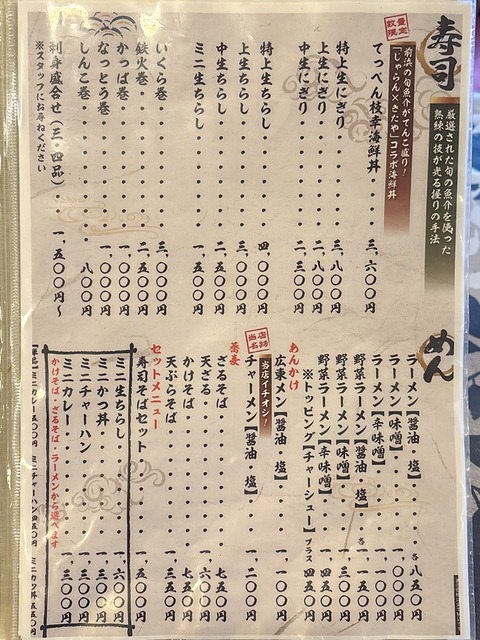 寿司
厳選された旬の魚介を使った
熟練の技が光る握りの手法
数量限定
前浜の旬魚介がてんこ盛り!
「じゃらん×きたや」コラボ海鮮丼
てっぺん枝幸海鮮丼・・・・三、六〇〇円
特上生にぎり・・・・・三、八〇〇円
上生にぎり・・・・・二、八〇〇円
中生にぎり・・・・・二、三〇〇円
特上生ちらし・・・・・四、〇〇〇円
上生ちらし・・・・・三、〇〇〇円
中生ちらし・・・・・二、五〇〇円
ミニ生ちらし・・・・・一、五〇〇円
いくら巻・・・・・三、〇〇〇円
鉄火巻・・・・・二、五〇〇円
かっぱ巻・・・・・一、〇〇〇円
なっとう巻・・・・・一、〇〇〇円
しんこ巻・・・・・八〇〇円
刺身盛合せ(三・四品)・・一、五〇〇円〜
※スタッフにお尋ねください
めん
ラーメン【醤油・塩】・・・各八五〇円
ラーメン【味噌】・・・一、〇〇〇円
ラーメン【辛味噌】・・・一、一〇〇円
野菜ラーメン【醤油・塩】・・各一、一五〇円
野菜ラーメン【味噌】・・・一、三〇〇円
野菜ラーメン【辛味噌】・・・一、四五〇円
※トッピング【チャーシュー】プラス四五〇円
あんかけ
広東メン【醤油・塩】・・・一、一〇〇円
当店名物
当店イチオシ!
チャーメン【醤油・塩】・・・一、二〇〇円
蕎麦
ざるそば・・・・・七五〇円
天ざる・・・・・一、六〇〇円
かけそば・・・・・七五〇円
天ぷらそば・・・・・一、三五〇円
セットメニュー
寿司そばセット・・・・・一、五〇〇円
ミニ生ちらし・・・・・一、六〇〇円
ミニかつ丼・・・・・一、三〇〇円
ミニチャーハン・・・・・一、三〇〇円
ミニカレー・・・・・一、三〇〇円
かけそば・ざるそば・ラーメンから選べます
【単品】ミニカレー五〇〇円 ミニチャーハン四五〇円 ミニカツ丼五五〇円